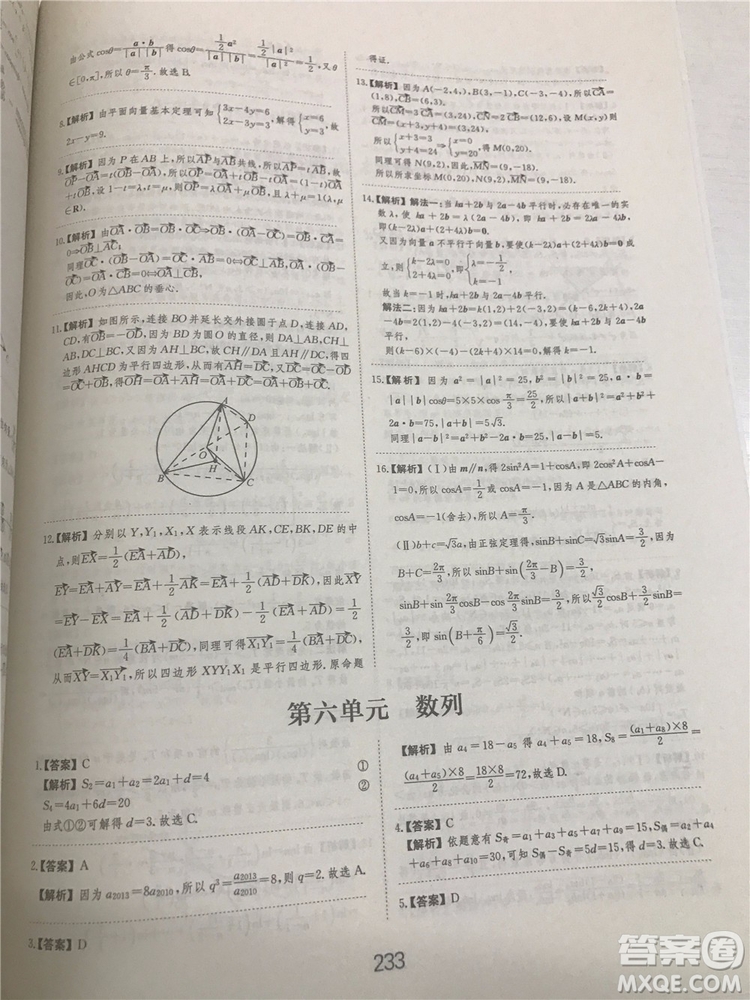 由公式cosθ=a·b/|a||b| 得cosθ=½a²/|a||b|=½|a|²/|a|²=1/2,又θ
∈[0,π],所以θ=π/3.故选B.
8.【解析】由平面向量基本定理可知{3x-4y=6 2x-3y=3,解得{x=6 y=3,故
2x-y=9.
9.【解析】因为P在AB上,所以AP与AB共线,所以AP=tAB,故
OP-OA=t(OB-OA),所以OP=OA+tOB-tOA=(1-t)OA
+tOB,设1-t=λ,t=μ,则OP=λOA+μOB且λ+μ=1(λ,μ∈
R).
10.【解析】由OA·OB=OB·OC⇒OB·(OA-OC)=OB·CA=
0⇒OB⊥AC;
同理OC·(OB-OA)=OC·AB=0⇒OC⊥AB,
因此,O为△ABC的垂心.
11.【解析】如图所示,连接BO并延长交外接圆于点D,连接AD,
CD,有OB=-OD,因为BD为圆O的直径,所以DA⊥AB,
CD⊥BC.又因为AH⊥BC,故CH∥DA且CD∥AH,即得四
边形AHCD为平行四边形,从而AH=DC,又因为DC=OC-
OD,得OH=OA+AH=OA+DC=OA+OB+OC.
A
D
O
H
B
C
12.【解析】分别以Y,Y₁,X₁,X表示线段AK,CE,BK,DE的中
点,则EX=1/2(EA+AD),
EY=EA+AY=EA+1/2(AD+DK),因此XY
=EY-EX=EA+1/2(AD+DK)-1/2(EA+AD)=
1/2(EA+DK)=1/4(AB+DC),同理可得X₁Y₁=1/4(AB+DC),
从而XY=X₁Y₁,所以四边形XYY₁X₁是平行四边形.原命题
得证.
13.【解析】因为A(-2,4,),B(3,-1),C(-3,-4),所以CA=
(1,8),CB=(6,3).
所以CM=3CA=(3,24),CN=2CB=(12,6),设M(x,y)则
CM=(x+3,y+4)=(3,24),
所以{x+3=3 y+4=24⇒{x=0 y=20,得M(0,20).
同理可得N(9,2),因此,MN=(9,-18).
所以所求坐标M(0,20),N(9,2),MN=(9,-18).
14.【解析】解法一:当ka+2b与2a-4b平行时,必存在唯一的实
数λ,使ka+2b=λ(2a-4b).
即(k-2λ)a+(2+4λ)b=0.
又因为向量a不平行于向量b,要使(k-2λ)a+(2+4λ)b=0成
立,则{k-2λ=0 2+4λ=0,即{λ=-1/2 k=-1.
所以当k=-1时,ka+2b与2a-4b平行.
解法二:ka+2b=k(1,2)+2(-3,2)=(k-6,2k+4),
2a-4b=2(1,2)-4(-3,2)=(14,-4),要使ka+2b与2a-4b
平行,即(k-6)×(-4)-(2k+4)×14=0
解得k=-1.
15.【解析】因为a²=|a|²=25,b²=|b|²=25,a·b=
|a||b|cosθ=5×5×cosπ/3=25/2,所以|a+b|²=a²+b²+
2a·b=75,|a+b|=5√3.
同理|a-b|²=25,|a-b|=5.
16.【解析】(Ⅰ)由m∥n,得2sin²A=1+cosA,即2cos²A+cosA-
1=0,所以cosA=1/2或cosA=-1.因为A是△ABC的内角,
cosA=-1(舍去),所以A=π/3.
(Ⅱ)b+c=√3a,由正弦定理得,sinB+sinC=√3sinA=3/2,因为
B+C=2π/3,sinB+sin(2π/3-B)=3/2,所以
sinB+sin2π/3cosB-cos2π/3sinB=3/2,√3/2cosB+3/2sinB=
3/2,即sin(B+π/6)=√3/2.
第六单元 数列
1.【答案】C
【解析】S₂=a₁+a₂=2a₁+d=4 ①
S₄=4a₁+6d=20 ②
由式①②可解得d=3.故选C.
2.【答案】A
【解析】因为a₂₀₁₃=8a₂₀₁₀,所以q³=a₂₀₁₃/a₂₀₁₀=8,则q=2.故选A.
3.【答案】D
【解析】由a₄=18-a₅得a₄+a₅=18,S₈=(a₁+a₈)×8/2=
(a₄+a₅)×8/2=18×8/2=72,故选D.
4.【答案】C
【解析】依题意有S奇=a₁+a₃+a₅+a₇+a₉=15,S偶=a₂+a₄
+a₆+a₈+a₁₀=30,可知S偶-S奇=5d=15,得d=3.故选C.
5.【答案】D
233
答案圈
MXQE.COM